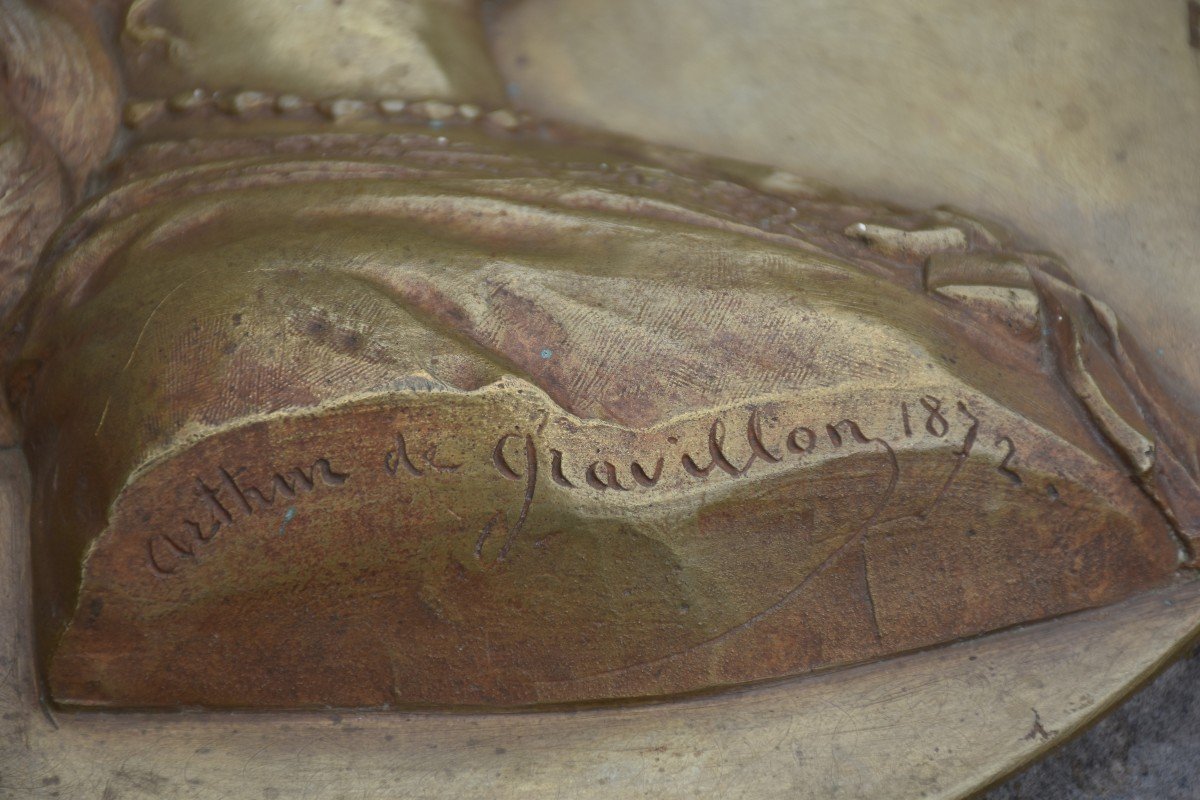 Arthur de Gravillon 1872.